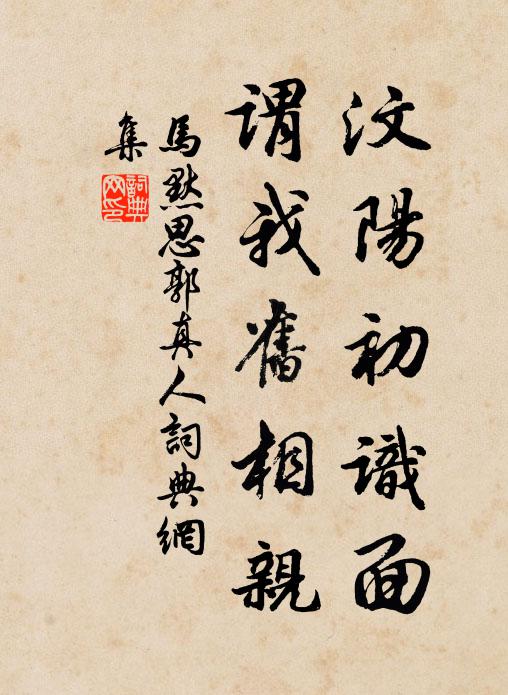 汶陽初識面
謂我舊相親
馬默思郭真人詞典網
集
詞典
网印